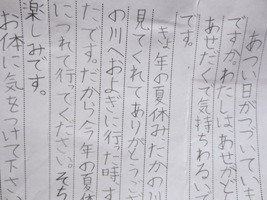 あつい日がつづいていま
ですか。わたしは、あせかど
あせたくて気持ちわるいで
です。
きょ年の夏休みたかの川
見てくれてありがとうござ
の川へおよぎに行った時す
たです。だから今年の夏休
につれて行ってください。そち
楽しみです。
お体に気をつけて下さい